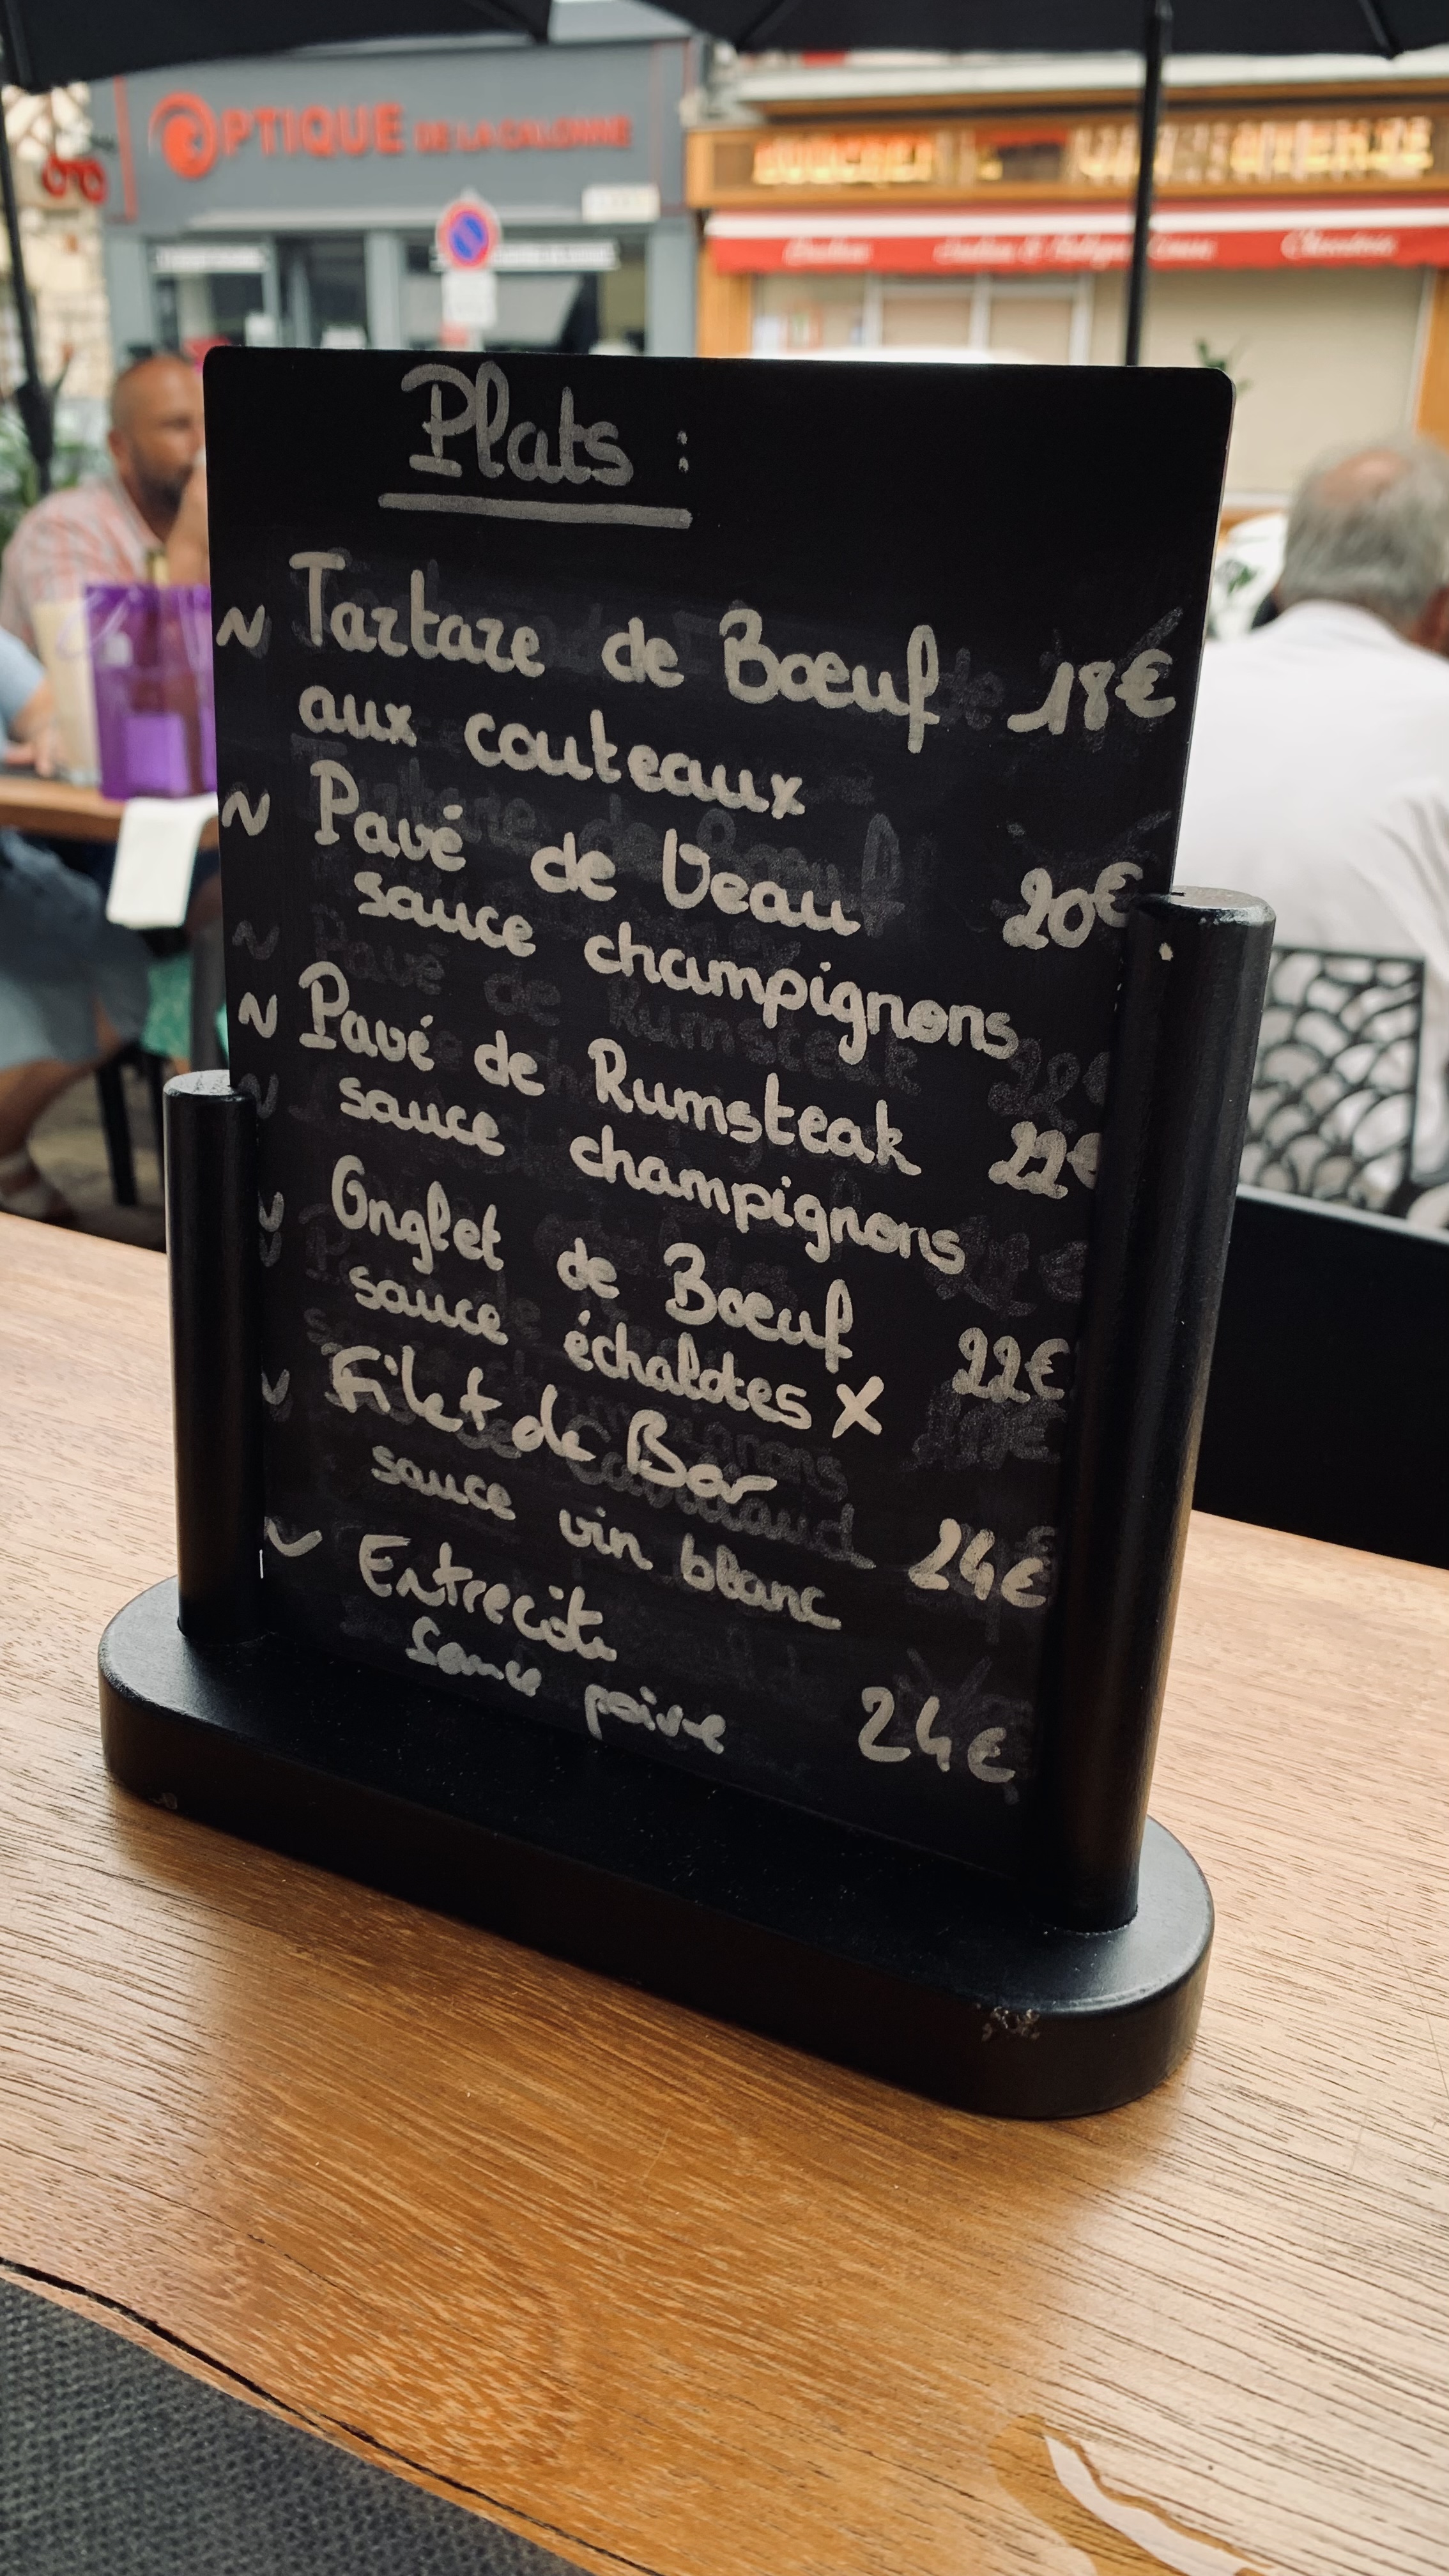 OPTIQUE DE LA CALONNE
Plats :
~ Tartare de Bœuf 18€
aux couteaux
~ Pavé de Veau 20€
sauce champignons
~ Pavé de Rumsteak 22€
sauce champignons
~ Onglet de Bœuf 22€
sauce échalotes X
~ Filet de Bar
sauce vin blanc 24€
~ Entrecôte
sauce poivre 24€